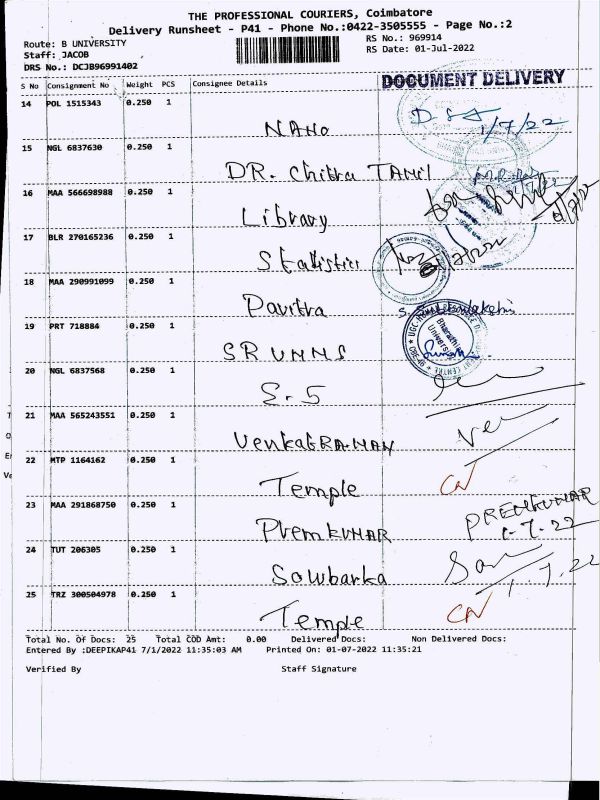 THE PROFESSIONAL COURIERS, Coimbatore
Delivery Runsheet - P41 - Phone No.:0422-3505555 - Page No.:2
Route: B UNIVERSITY RS No.: 969914
Staff: JACOB RS Date: 01-Jul-2022
DRS No.: DCJB96991402
DOCUMENT DELIVERY
S No Consignment No Weight PCS Consignee Details
14 POL 1515343 0.250 1
NANO 1/7/22
15 NGL 6837630 0.250 1
DR. Chitra TAMIL
16 MAA 566698988 0.250 1
Library
17 BLR 270165236 0.250 1
Statistics
18 MAA 290991099 0.250 1
Pavitra
19 PRT 718884 0.250 1
SRUNNS
20 NGL 6837568 0.250 1
S.5
21 MAA 565243551 0.250 1
VenkatRAMAN Ven
22 MTP 1164162 0.250 1
Temple
23 MAA 291868750 0.250 1
PremKUMAR PREMKUMAR
1.7.22
24 TUT 206305 0.250 1
Sowbarka 1.7.22
25 TRZ 300504978 0.250 1
Temple
Total No. Of Docs: 25 Total COD Amt: 0.00 Delivered Docs: Non Delivered Docs:
Entered By :DEEPIKAP41 7/1/2022 11:35:03 AM Printed On: 01-07-2022 11:35:21
Verified By Staff Signature